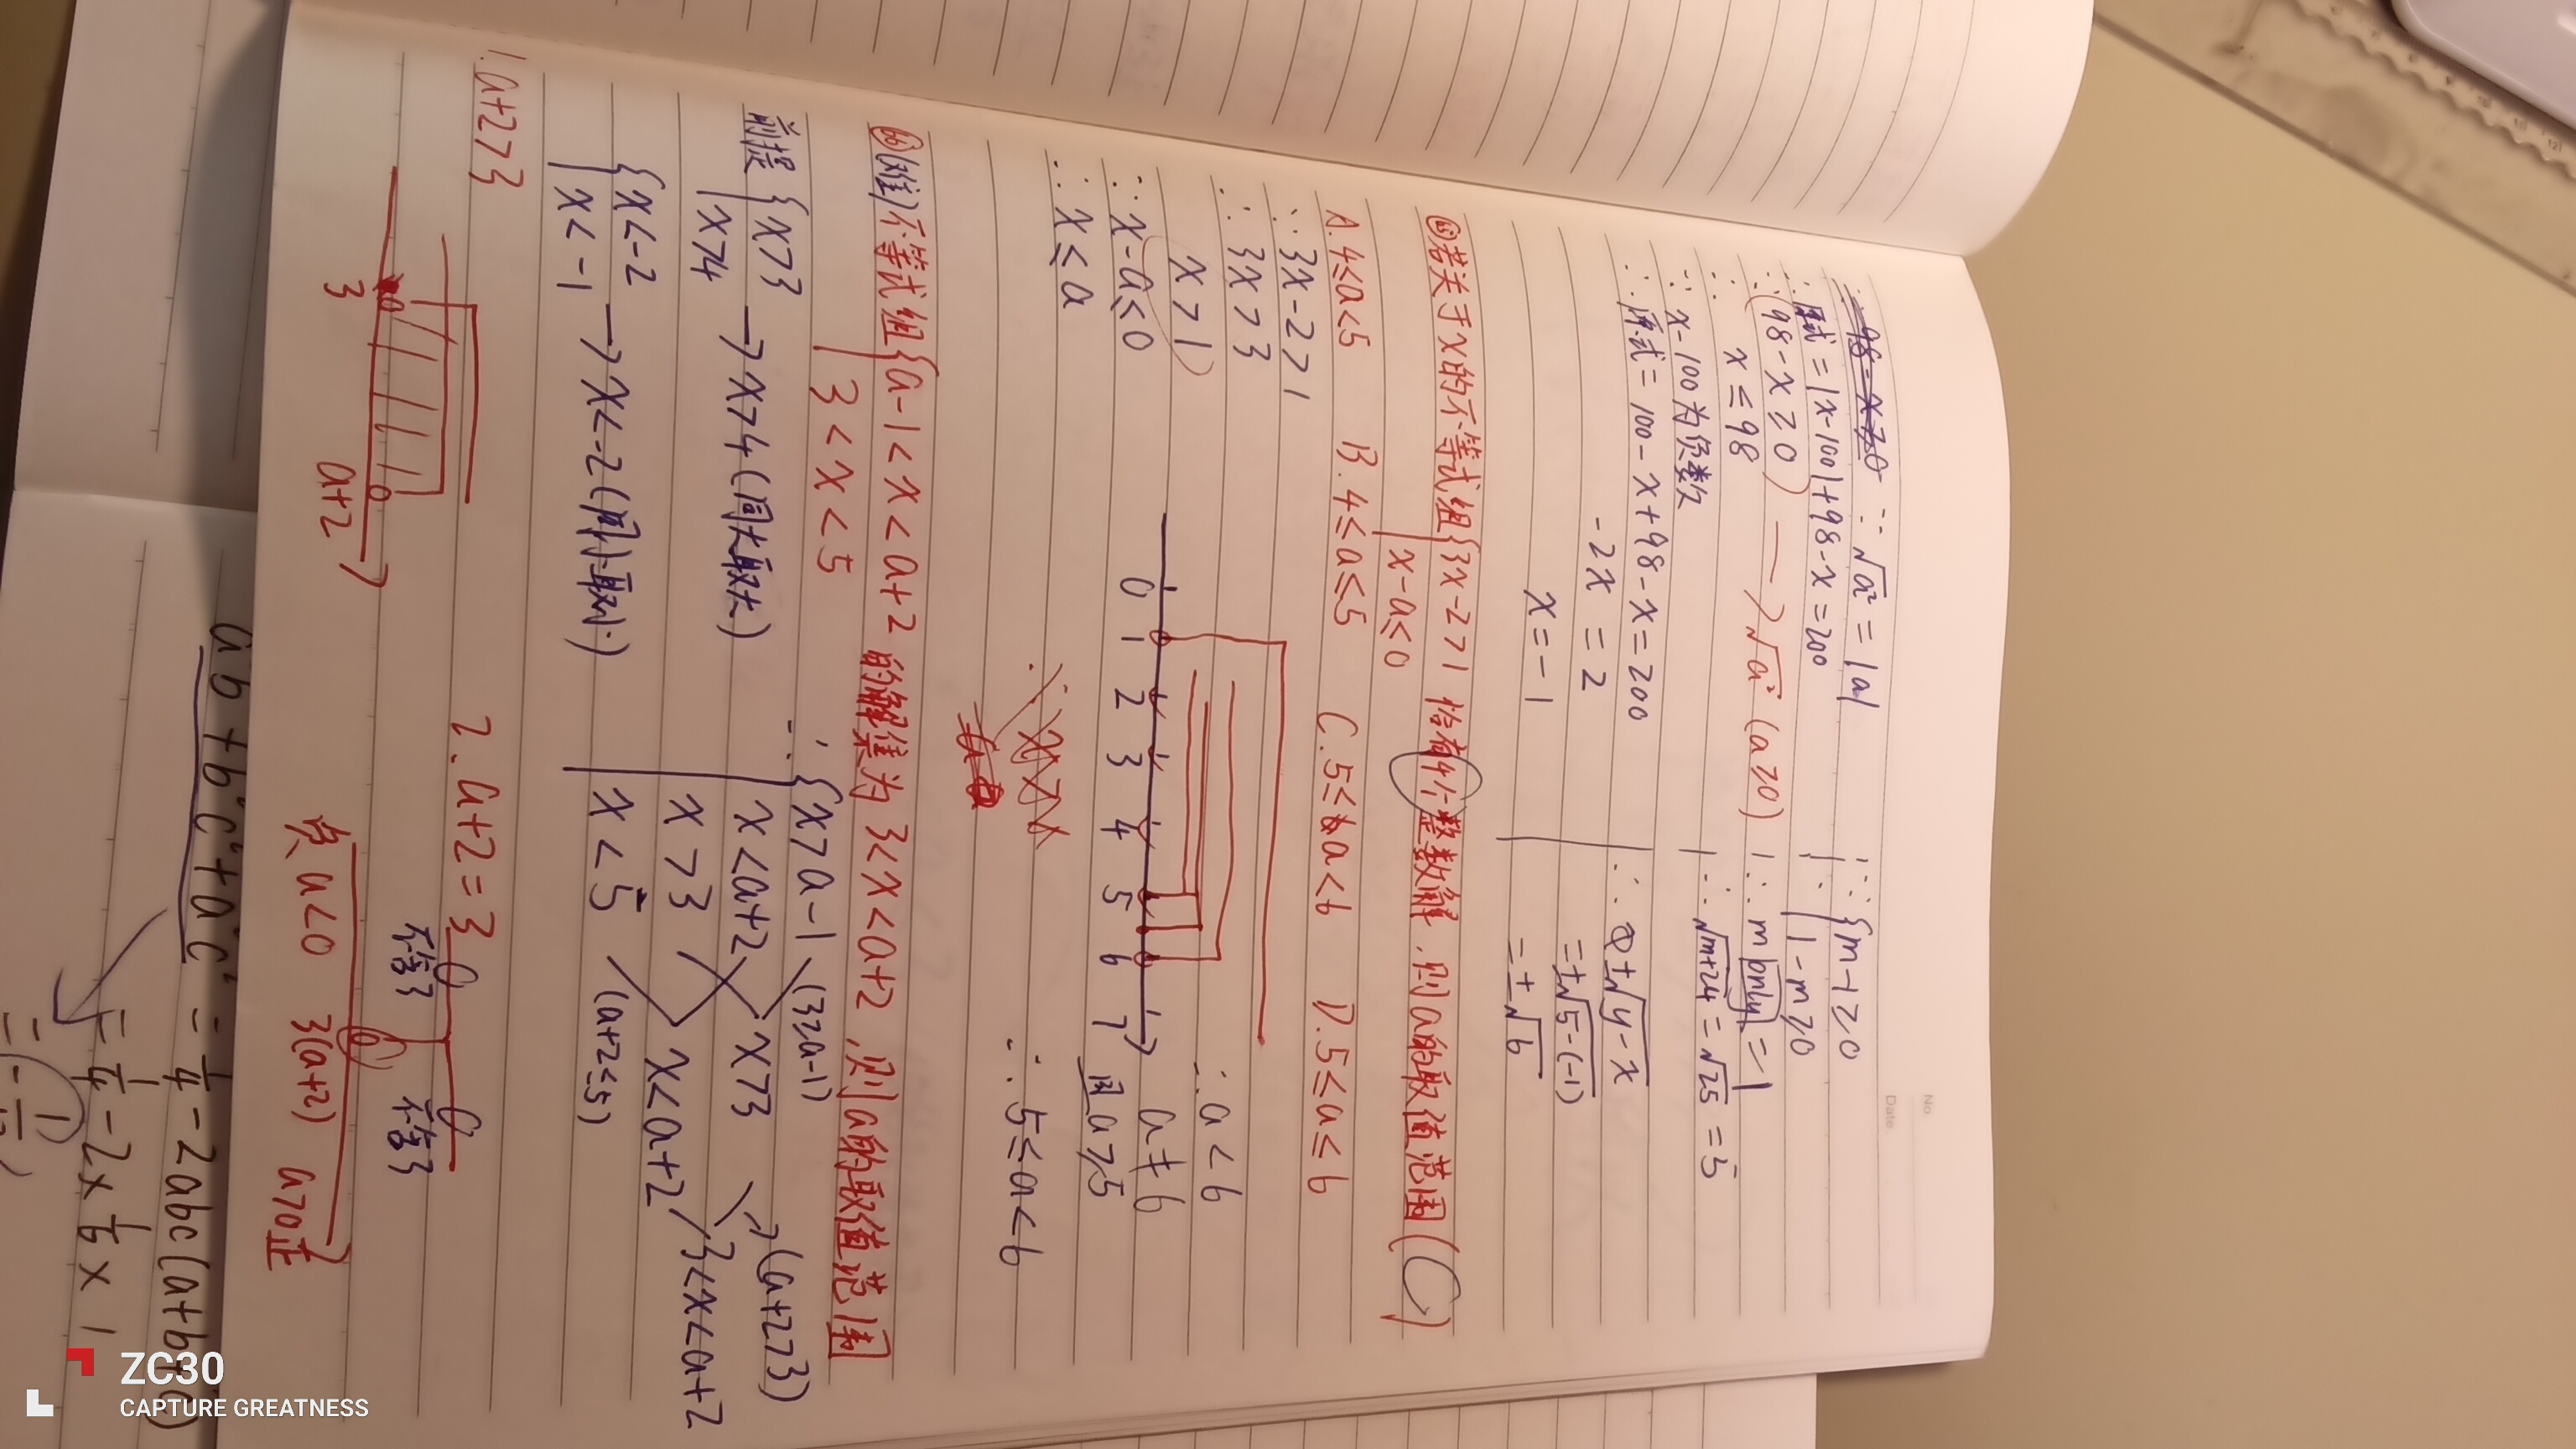 No.
Date.
∵ √a² = |a|
∴ 原式 = |x-100|+98-x=200
∵ (98-x≥0) → √a² (a≥0)
∴ x≤98
∵ x-100为负数
∴ 原式= 100-x+98-x=200
-2x = 2
x=-1
∵ { m-1≥0
1-m≥0
∴ m only = 1
∴ √m+24 = √25 = 5
∴ ±√y-x
=±√5-(-1)
=±√6
⑥若关于x的不等式组{3x-2>1 恰有4个整数解,则a的取值范围(C)
x-a≤0
A.4≤a<5 B.4≤a≤5 C.5≤a<6 D.5≤a≤6
∵ 3x-2>1
∴ 3x>3
x>1
∵ x-a≤0
∴ x≤a
0 1 2 3 4 5 6 7
∴ a<6
a≠6
且a≥5
∴ 5≤a<6
⑥(难)不等式组{a-1<x<a+2 的解集为3<x<a+2,则a的取值范围
3<x<5
前提 {x>3
x>4 → x>4(同大取大)
{x<-2
x<-1 → x<-2(同小取小)
∴ {x>a-1
x<a+2
x>3
x<5
(3≥a-1)
x>3
x<a+2
(a+2≤5)
(a+2>3)
3<x<a+2
1.a+2>3
3 a+2
2.a+2=3
不含3 不含3
负 a<0 3(a+2) a>0正
= 1/4 - 2abc(a+b+c)
= 1/4 - 2×1/6×1
ZC30
CAPTURE GREATNESS